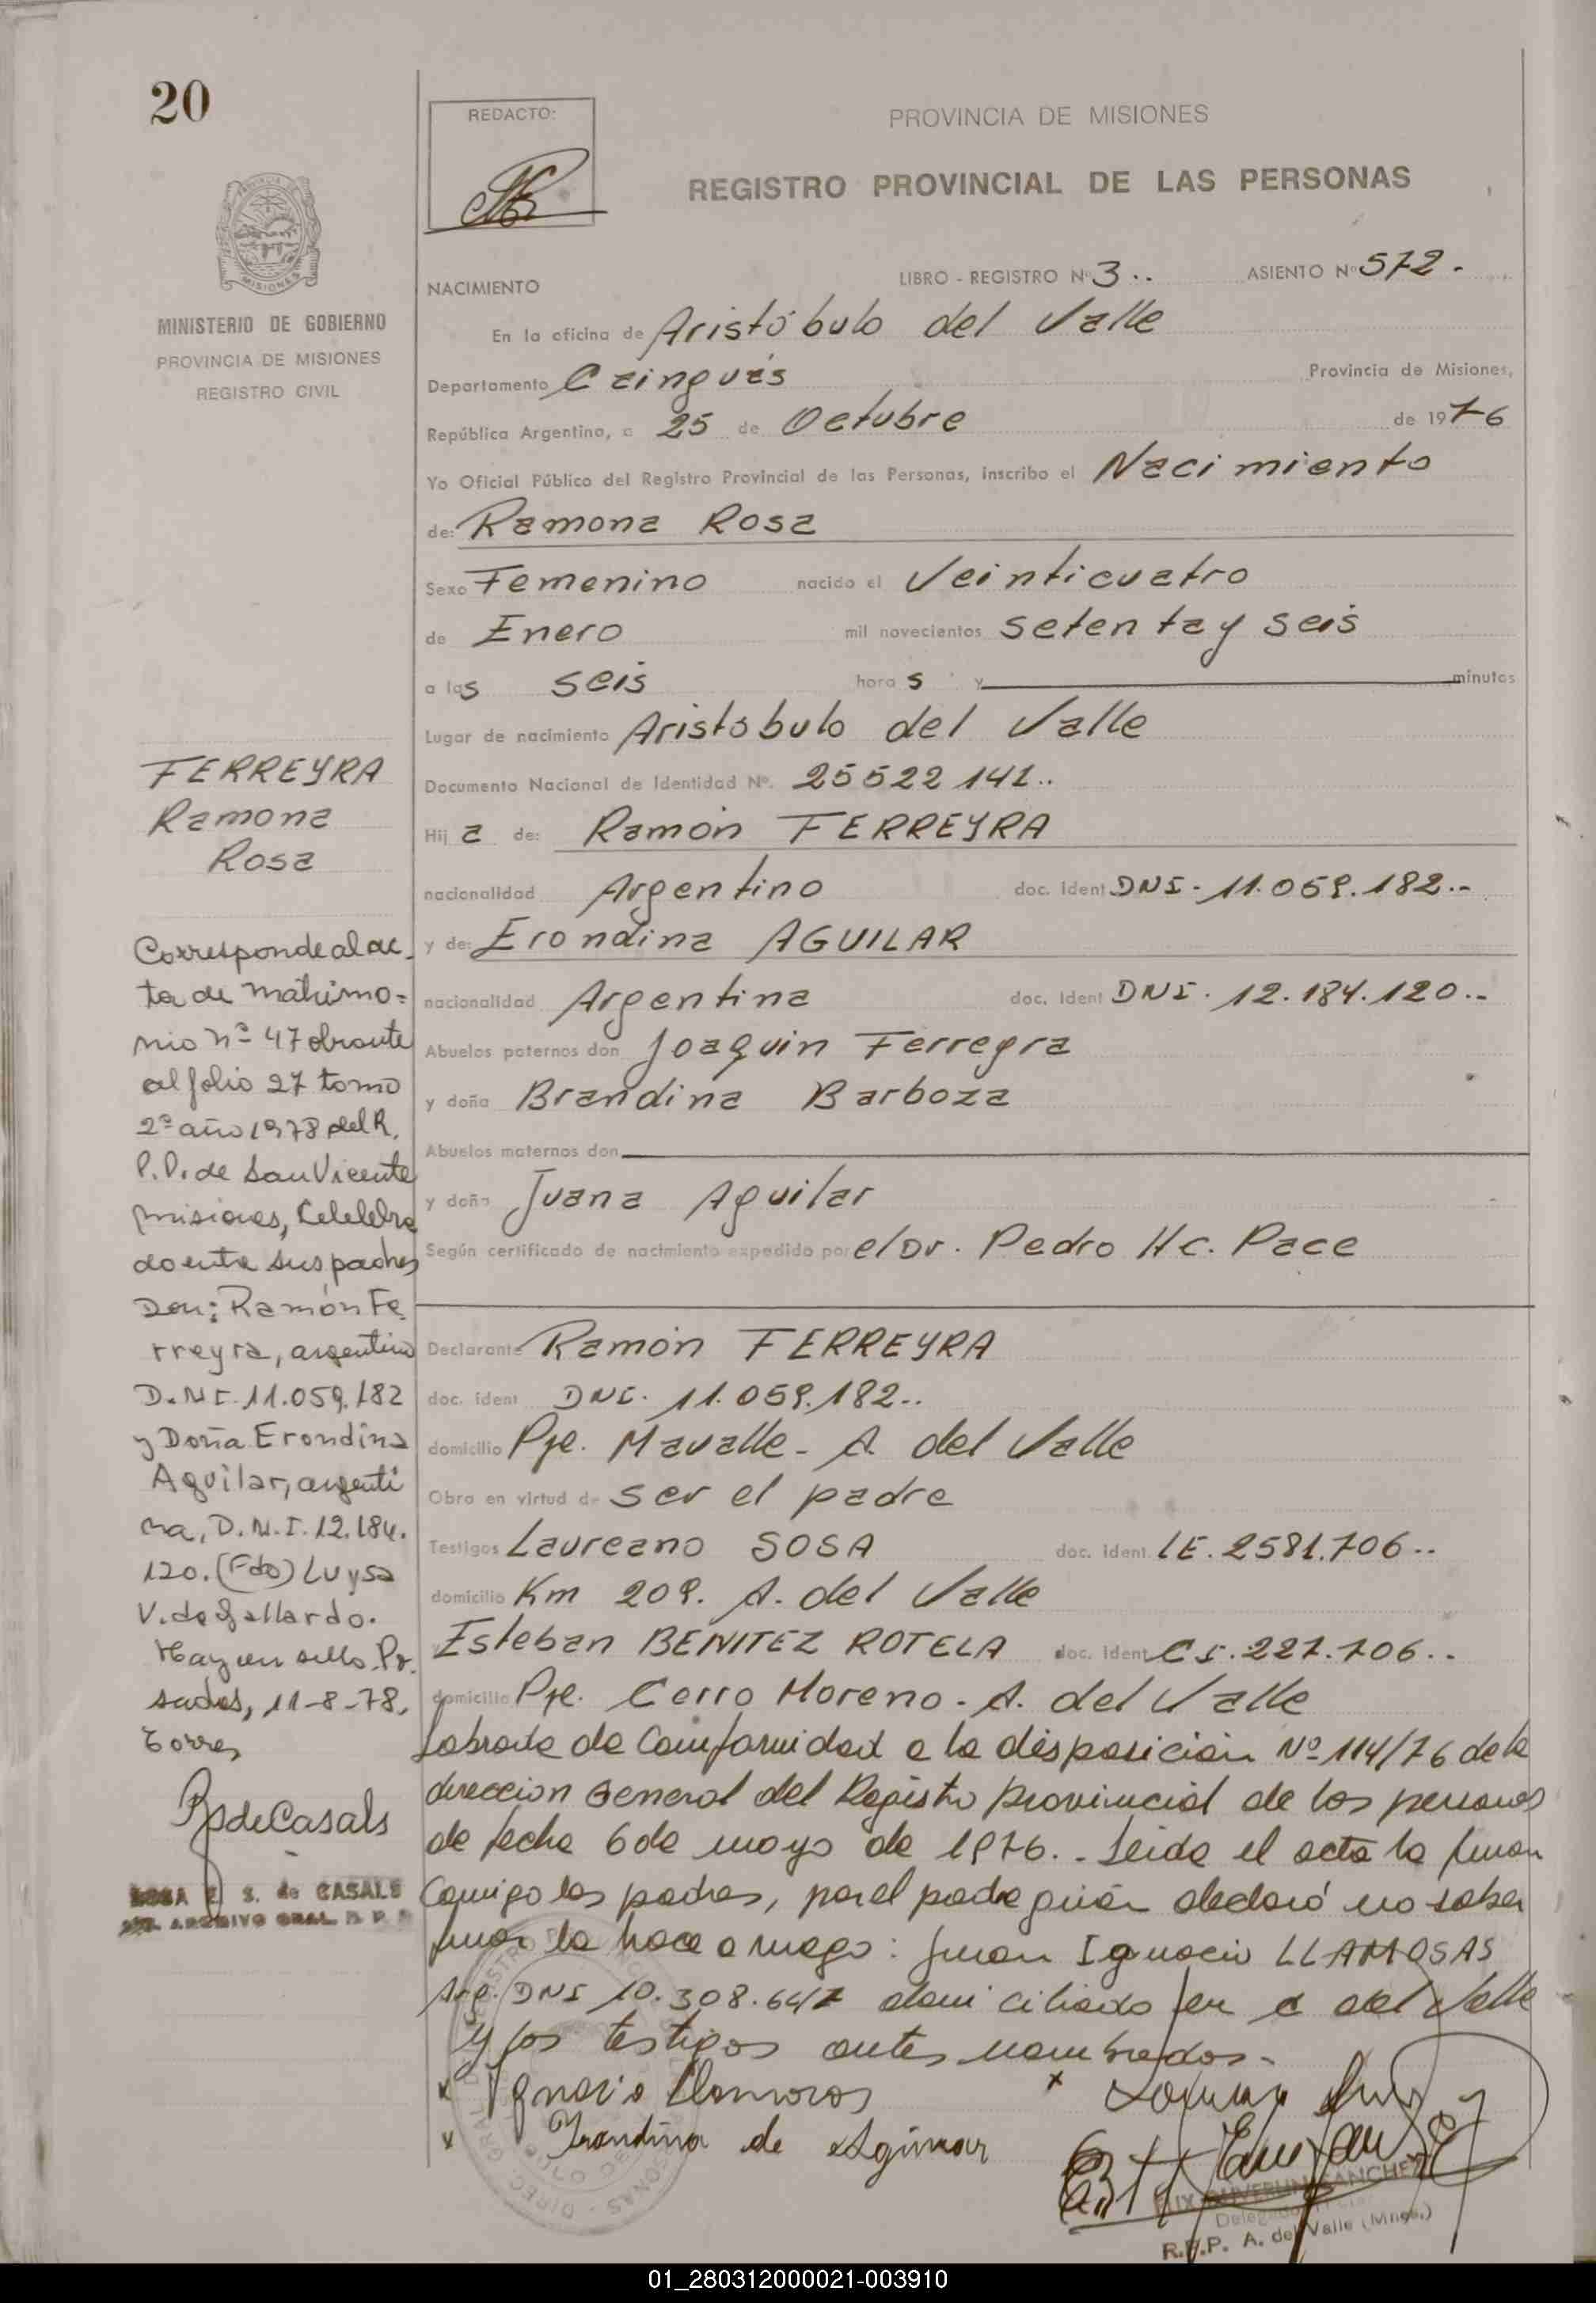 20
REDACTO:
PROVINCIA DE MISIONES
REGISTRO PROVINCIAL DE LAS PERSONAS
MISIONES
MINISTERIO DE GOBIERNO
PROVINCIA DE MISIONES
REGISTRO CIVIL
NACIMIENTO LIBRO - REGISTRO Nº 3.. ASIENTO Nº 572.
En la oficina de Aristóbulo del Valle
Departamento Cainguás Provincia de Misiones,
República Argentina, a 25 de Octubre de 1976
Yo Oficial Público del Registro Provincial de las Personas, inscribo el Nacimiento
de: Ramona Rosa
Sexo Femenino nacido el Veinticuatro
de Enero mil novecientos setenta y seis
a las seis horas y minutos
Lugar de nacimiento Aristóbulo del Valle
Documento Nacional de Identidad Nº. 25522141..
Hija de: Ramón FERREYRA
nacionalidad Argentino doc. ident DNI- 11.059.182.-
y de: Erondina AGUILAR
nacionalidad Argentina doc. ident DNI. 12.184.120.-
Abuelos paternos don Joaquin Ferreyra
y doña Brandina Barboza
Abuelos maternos don
y doña Juana Aguilar
Según certificado de nacimiento expedido por el Dr. Pedro Hc. Pace
Declarante Ramón FERREYRA
doc. ident DNI. 11.059.182..
domicilio Pje. Mavalle- A. del Valle
Obra en virtud de ser el padre
Testigos Laureano SOSA doc. ident LE. 2581.706..
domicilio Km 209. A. del Valle
Esteban BENITEZ ROTELA doc. ident CI. 227.706..
domicilio Pje. Cerro Moreno- A. del Valle
Labrada de Conformidad a la disposición Nº 114/76 de la
direccion General del Registro provincial de las personas
de fecha 6 de mayo de 1976.- Leida el acta la firman
Conmigo los padres, por el padre quién declaró no saber
firmar la hace a ruego: Juan Ignacio LLAMOSAS
Arg. DNI 10.308.647 domiciliado en A del Valle
y los testigos antes nombrados.-
x Ignacio Llamosas x
x Irondina de Aguiar
SANCHEZ
Delegado
R.P.P. A. del Valle (Mnes.)
FERREYRA
Ramona
Rosa
Corresponde al ac-
ta de matrimo=
nio nº 47 obrante
al folio 27 tomo
2º año 1978 del R.
P.P. de San Vicente
misiones, Celebra
do entre sus padres
Don: Ramón Fe
rreyra, argentino
D.N.I. 11.059.182
y Doña Erondina
Aguilar, argenti
na, D.N.I. 12.184.
120. (Fdo) Luysa
V. de Gallardo.
Hay un sello. Po
sadas, 11-8-78.
Torres
RpdeCasals
ROSA E. S. de CASALS
ARCHIVO GRAL. R. P. P.
01_280312000021-003910